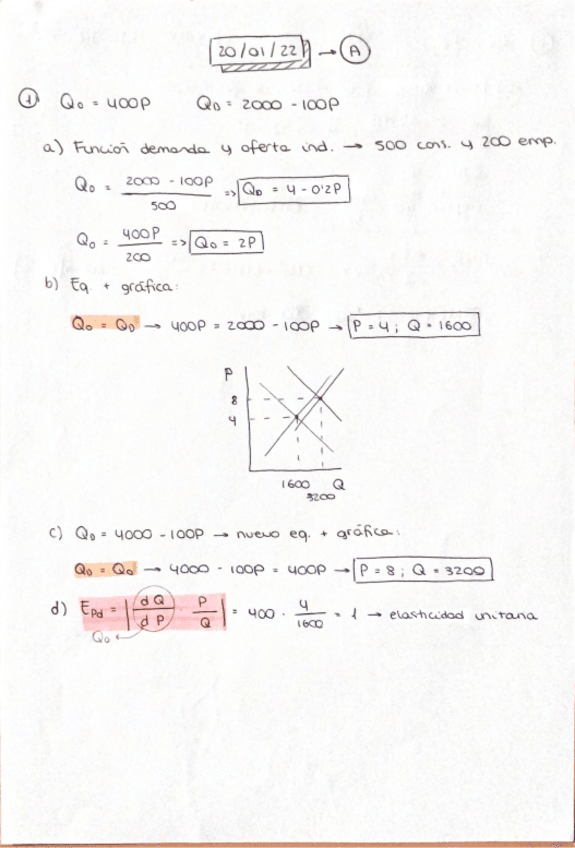 20/01/22 → A
1) Qo = 400P QD = 2000 - 100P
a) Función demanda y oferta ind. → 500 cons. y 200 emp.
QD = 2000 - 100P / 500 => QD = 4 - 0'2P
Qo = 400P / 200 => Qo = 2P
b) Eq. + gráfica:
Qo = QD → 400P = 2000 - 100P → P = 4 ; Q = 1600
P
8
4
1600 Q
3200
c) QD = 4000 - 100P → nuevo eq. + gráfica:
QD = Qo → 4000 - 100P = 400P → P = 8 ; Q = 3200
d) EPd = | dQ / dP · P / Q | = 400 · 4 / 1600 = 1 → elasticidad unitaria
Qo ←